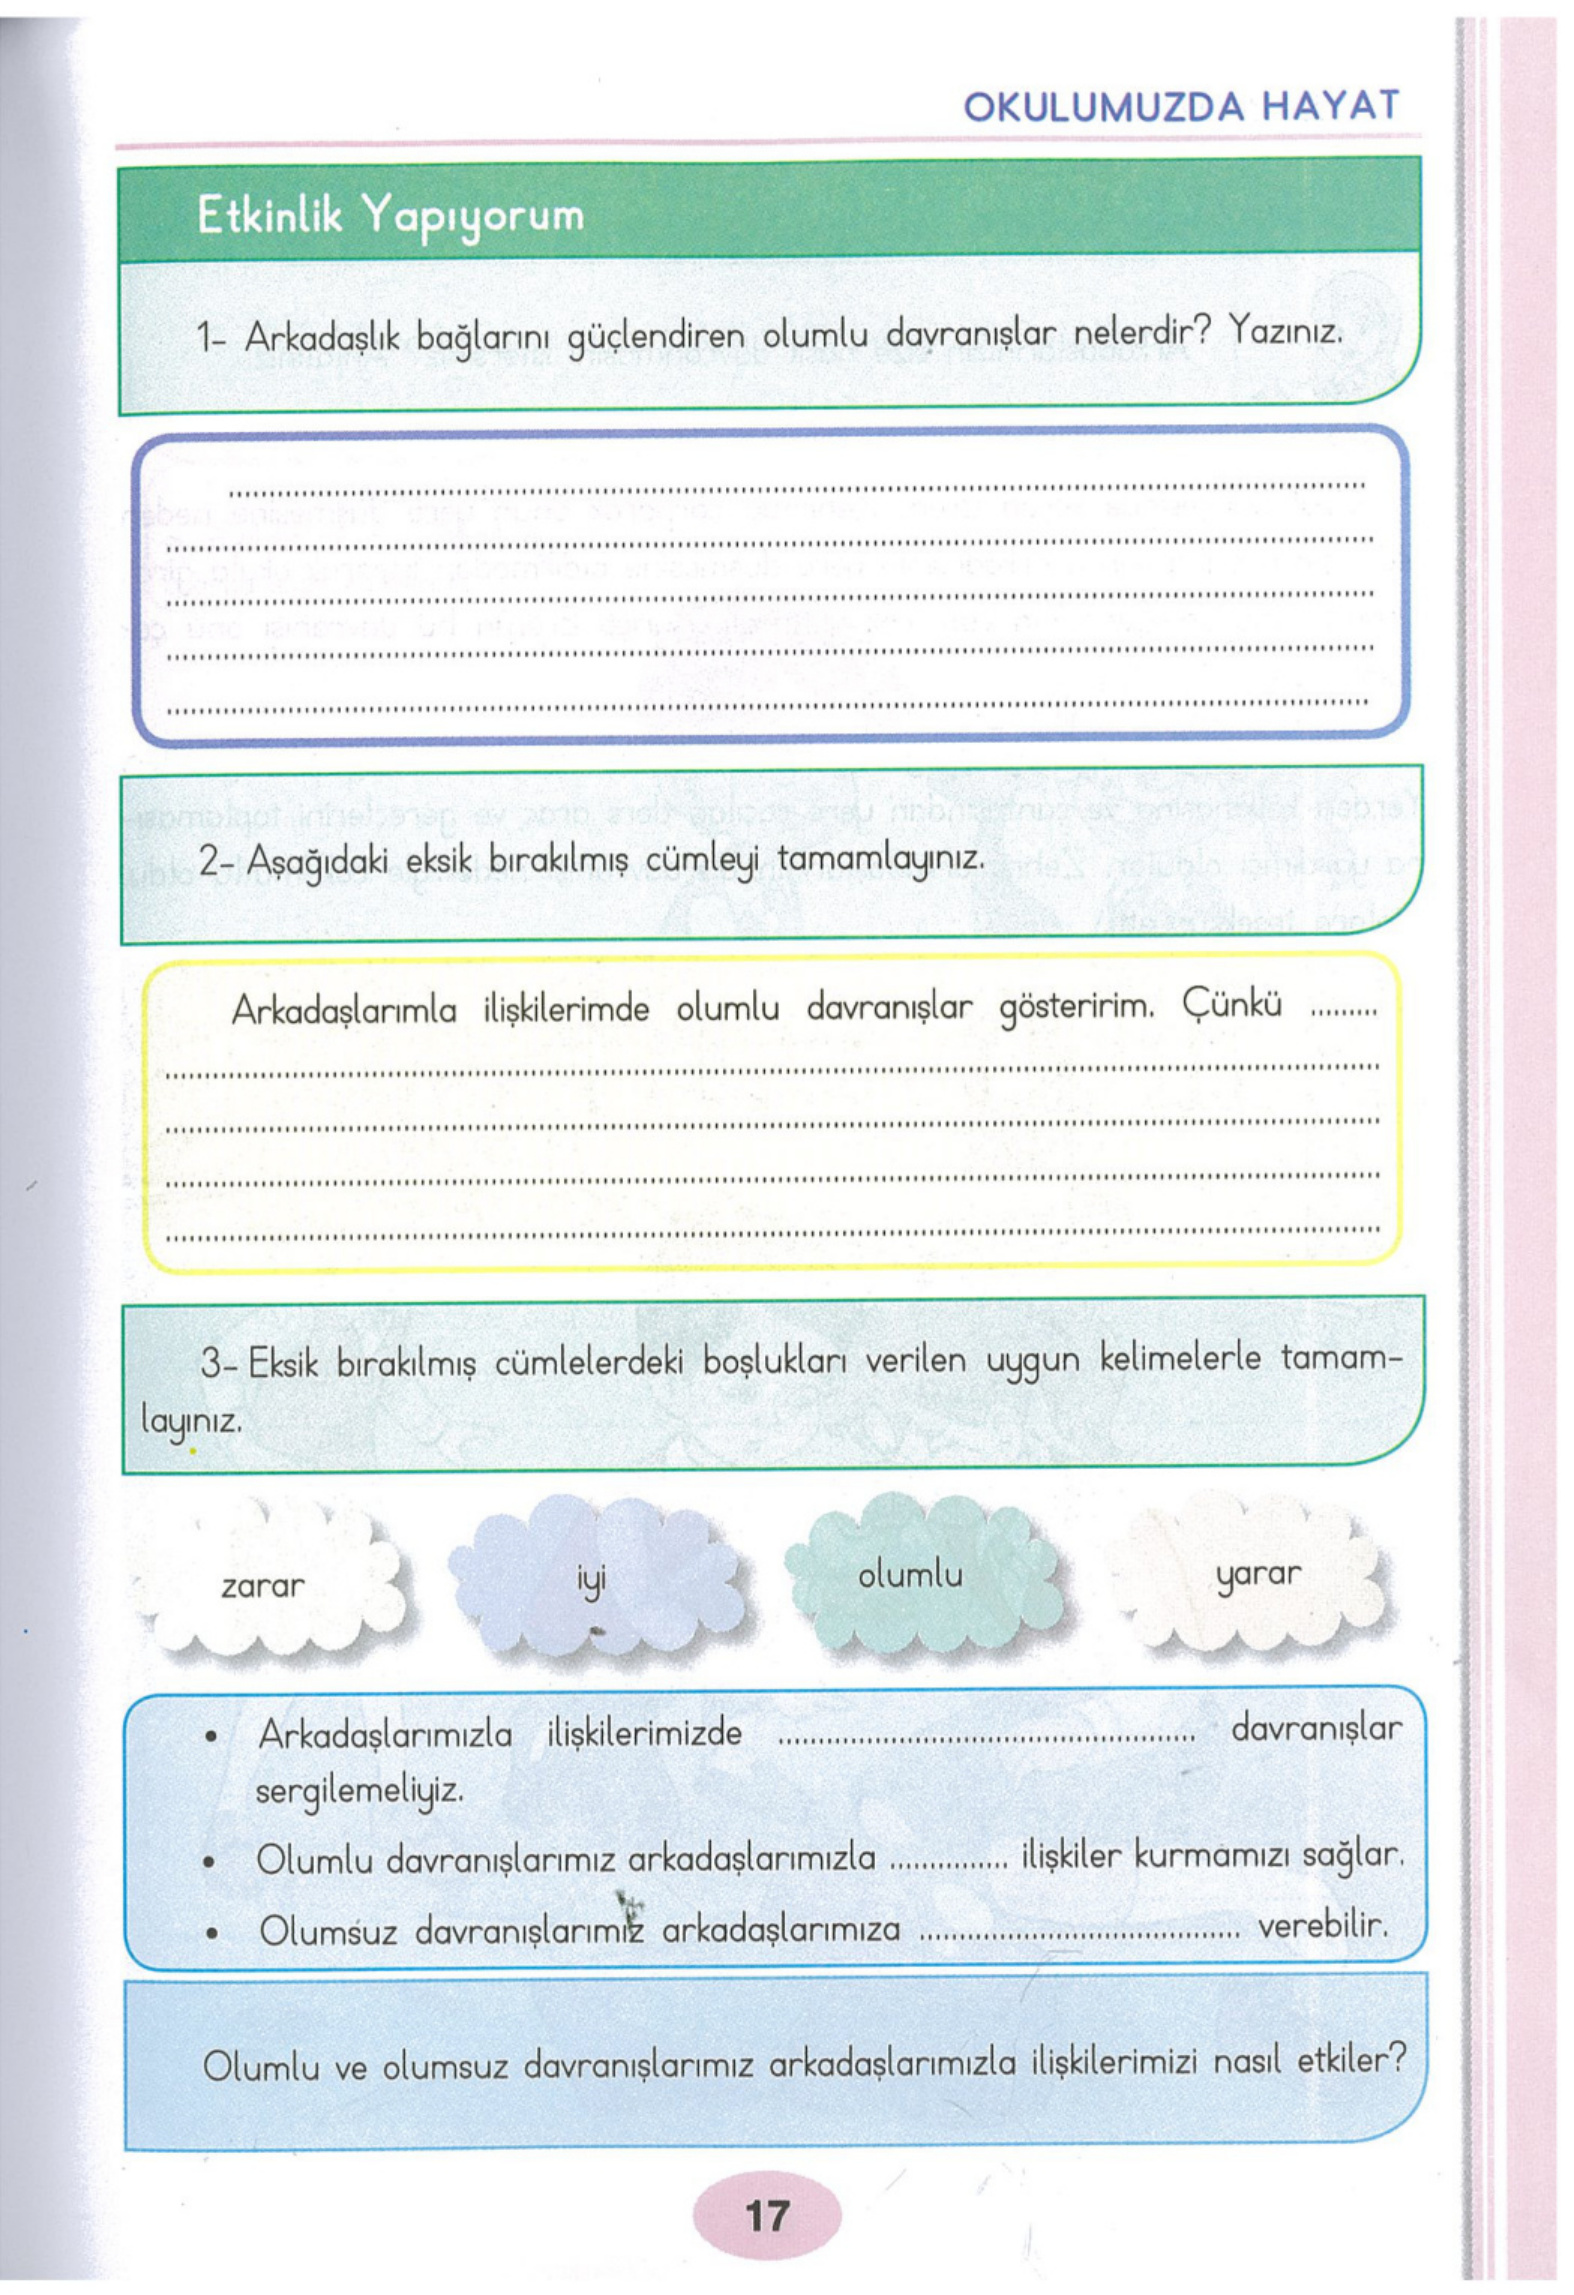 OKULUMUZDA HAYAT
Etkinlik Yapıyorum
1- Arkadaşlık bağlarını güçlendiren olumlu davranışlar nelerdir? Yazınız.
2- Aşağıdaki eksik bırakılmış cümleyi tamamlayınız.
Arkadaşlarımla ilişkilerimde olumlu davranışlar gösteririm. Çünkü .........
3- Eksik bırakılmış cümlelerdeki boşlukları verilen uygun kelimelerle tamam-
layınız.
zarar iyi olumlu yarar
• Arkadaşlarımızla ilişkilerimizde .................................................. davranışlar
sergilemeliyiz.
• Olumlu davranışlarımız arkadaşlarımızla ............... ilişkiler kurmamızı sağlar.
• Olumsuz davranışlarımız arkadaşlarımıza ....................................... verebilir.
Olumlu ve olumsuz davranışlarımız arkadaşlarımızla ilişkilerimizi nasıl etkiler?
17